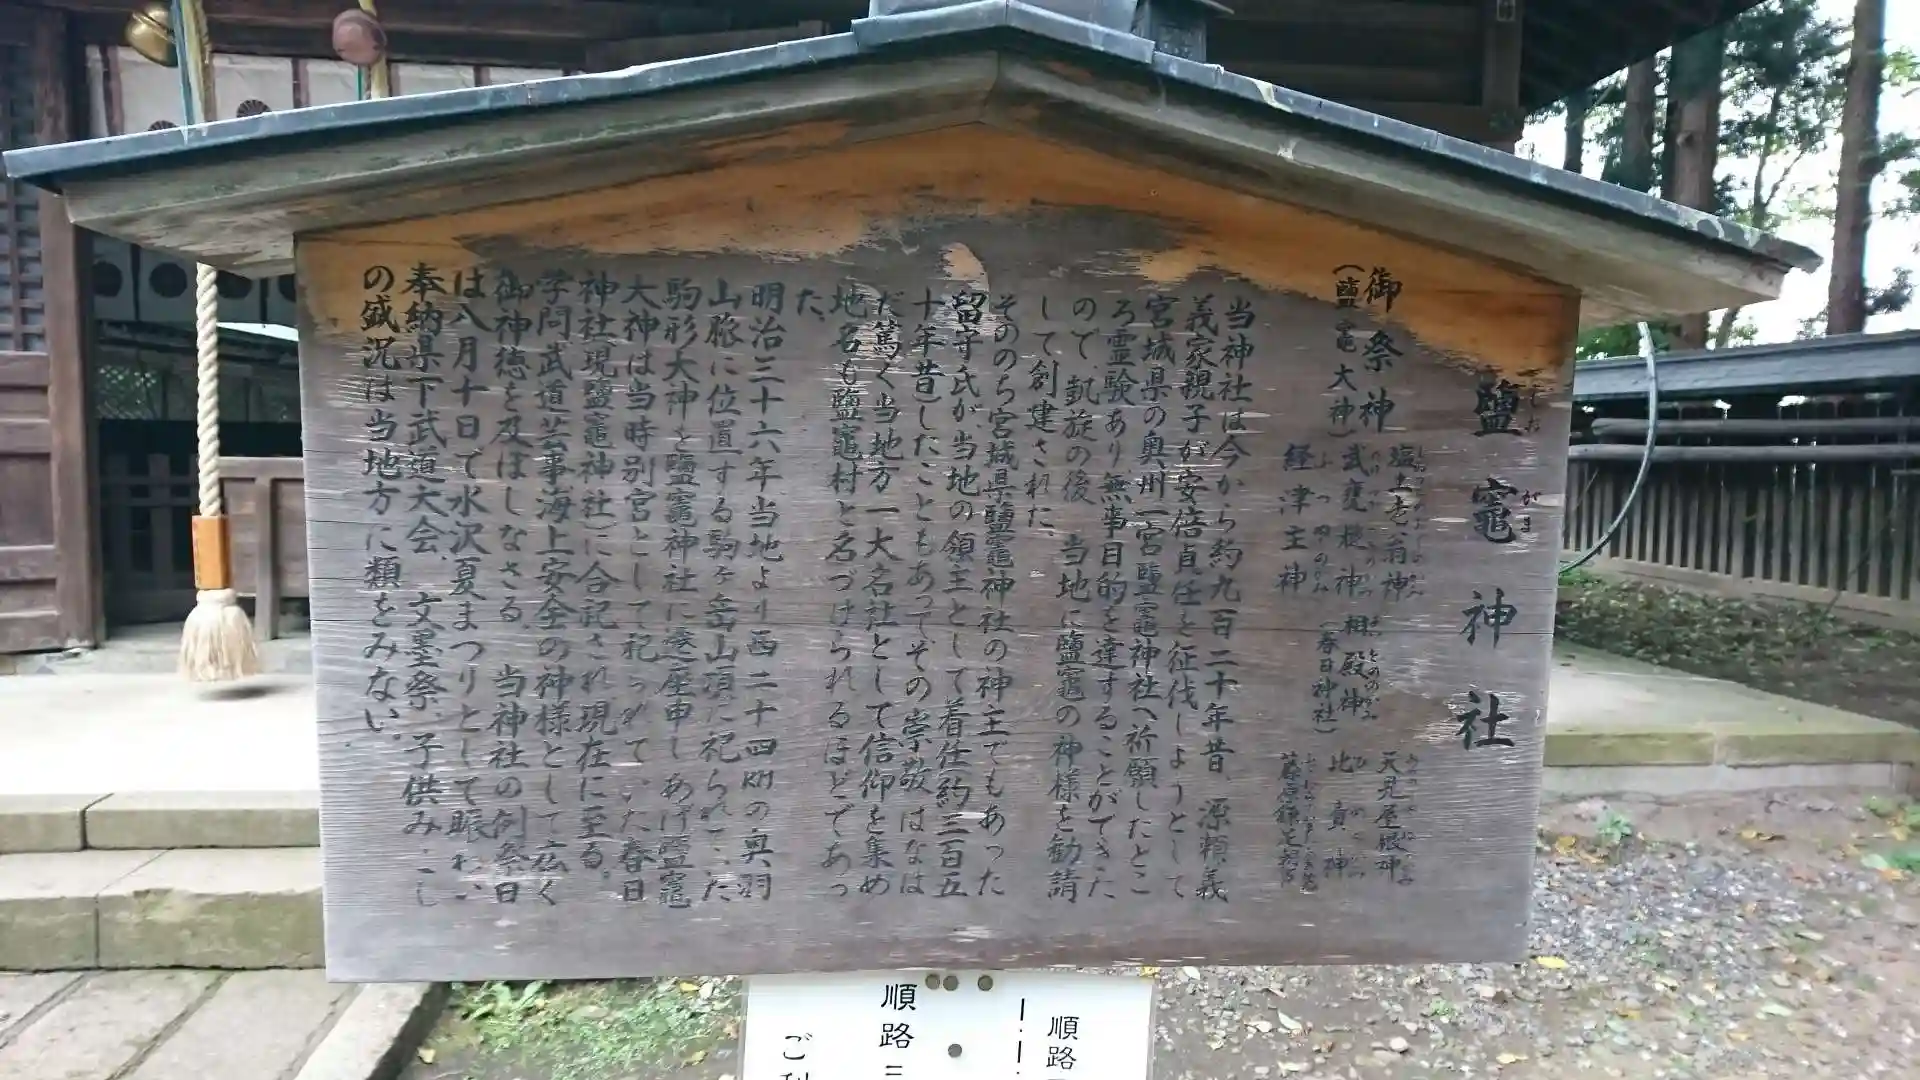 鹽竈神社
御祭神
(鹽竈大神)
塩土老翁神
武甕槌神
経津主神
相殿神
(春日神社)
天児屋根神
比賣神
当神社は今から約九百二十年昔、源頼義
義家親子が安倍貞任を征伐しようとして
宮城県の奥州一宮鹽竈神社へ祈願したとこ
ろ霊験あり無事目的を達することができた
ので、凱旋の後、当地に鹽竈の神様を勧請
して創建された。
そののち宮城県鹽竈神社の神主でもあった
留守氏が当地の領主として着任約三百五
十年昔したこともあってその崇敬はなはは
だ篤く当地方一大名社として信仰を集め
地名も鹽竈村と名づけられるほどであっ
た。
明治三十六年当地より西二十四KMの奥羽
山脈に位置する駒ヶ岳山頂に祀られていた
駒形大神を鹽竈神社に遷座申しあげ鹽竈
大神は当時別宮として祀られていた春日
神社現鹽竈神社)に合祀され現在に至る。
学問武道芸事海上安全の神様として広く
御神徳を及ぼしなさる。当神社の例祭日
は八月十日で水沢夏まつりとして賑わい
奉納県下武道大会、文墨祭、子供みこし
の盛況は当地方に類をみない。
順路
順路三
ご利